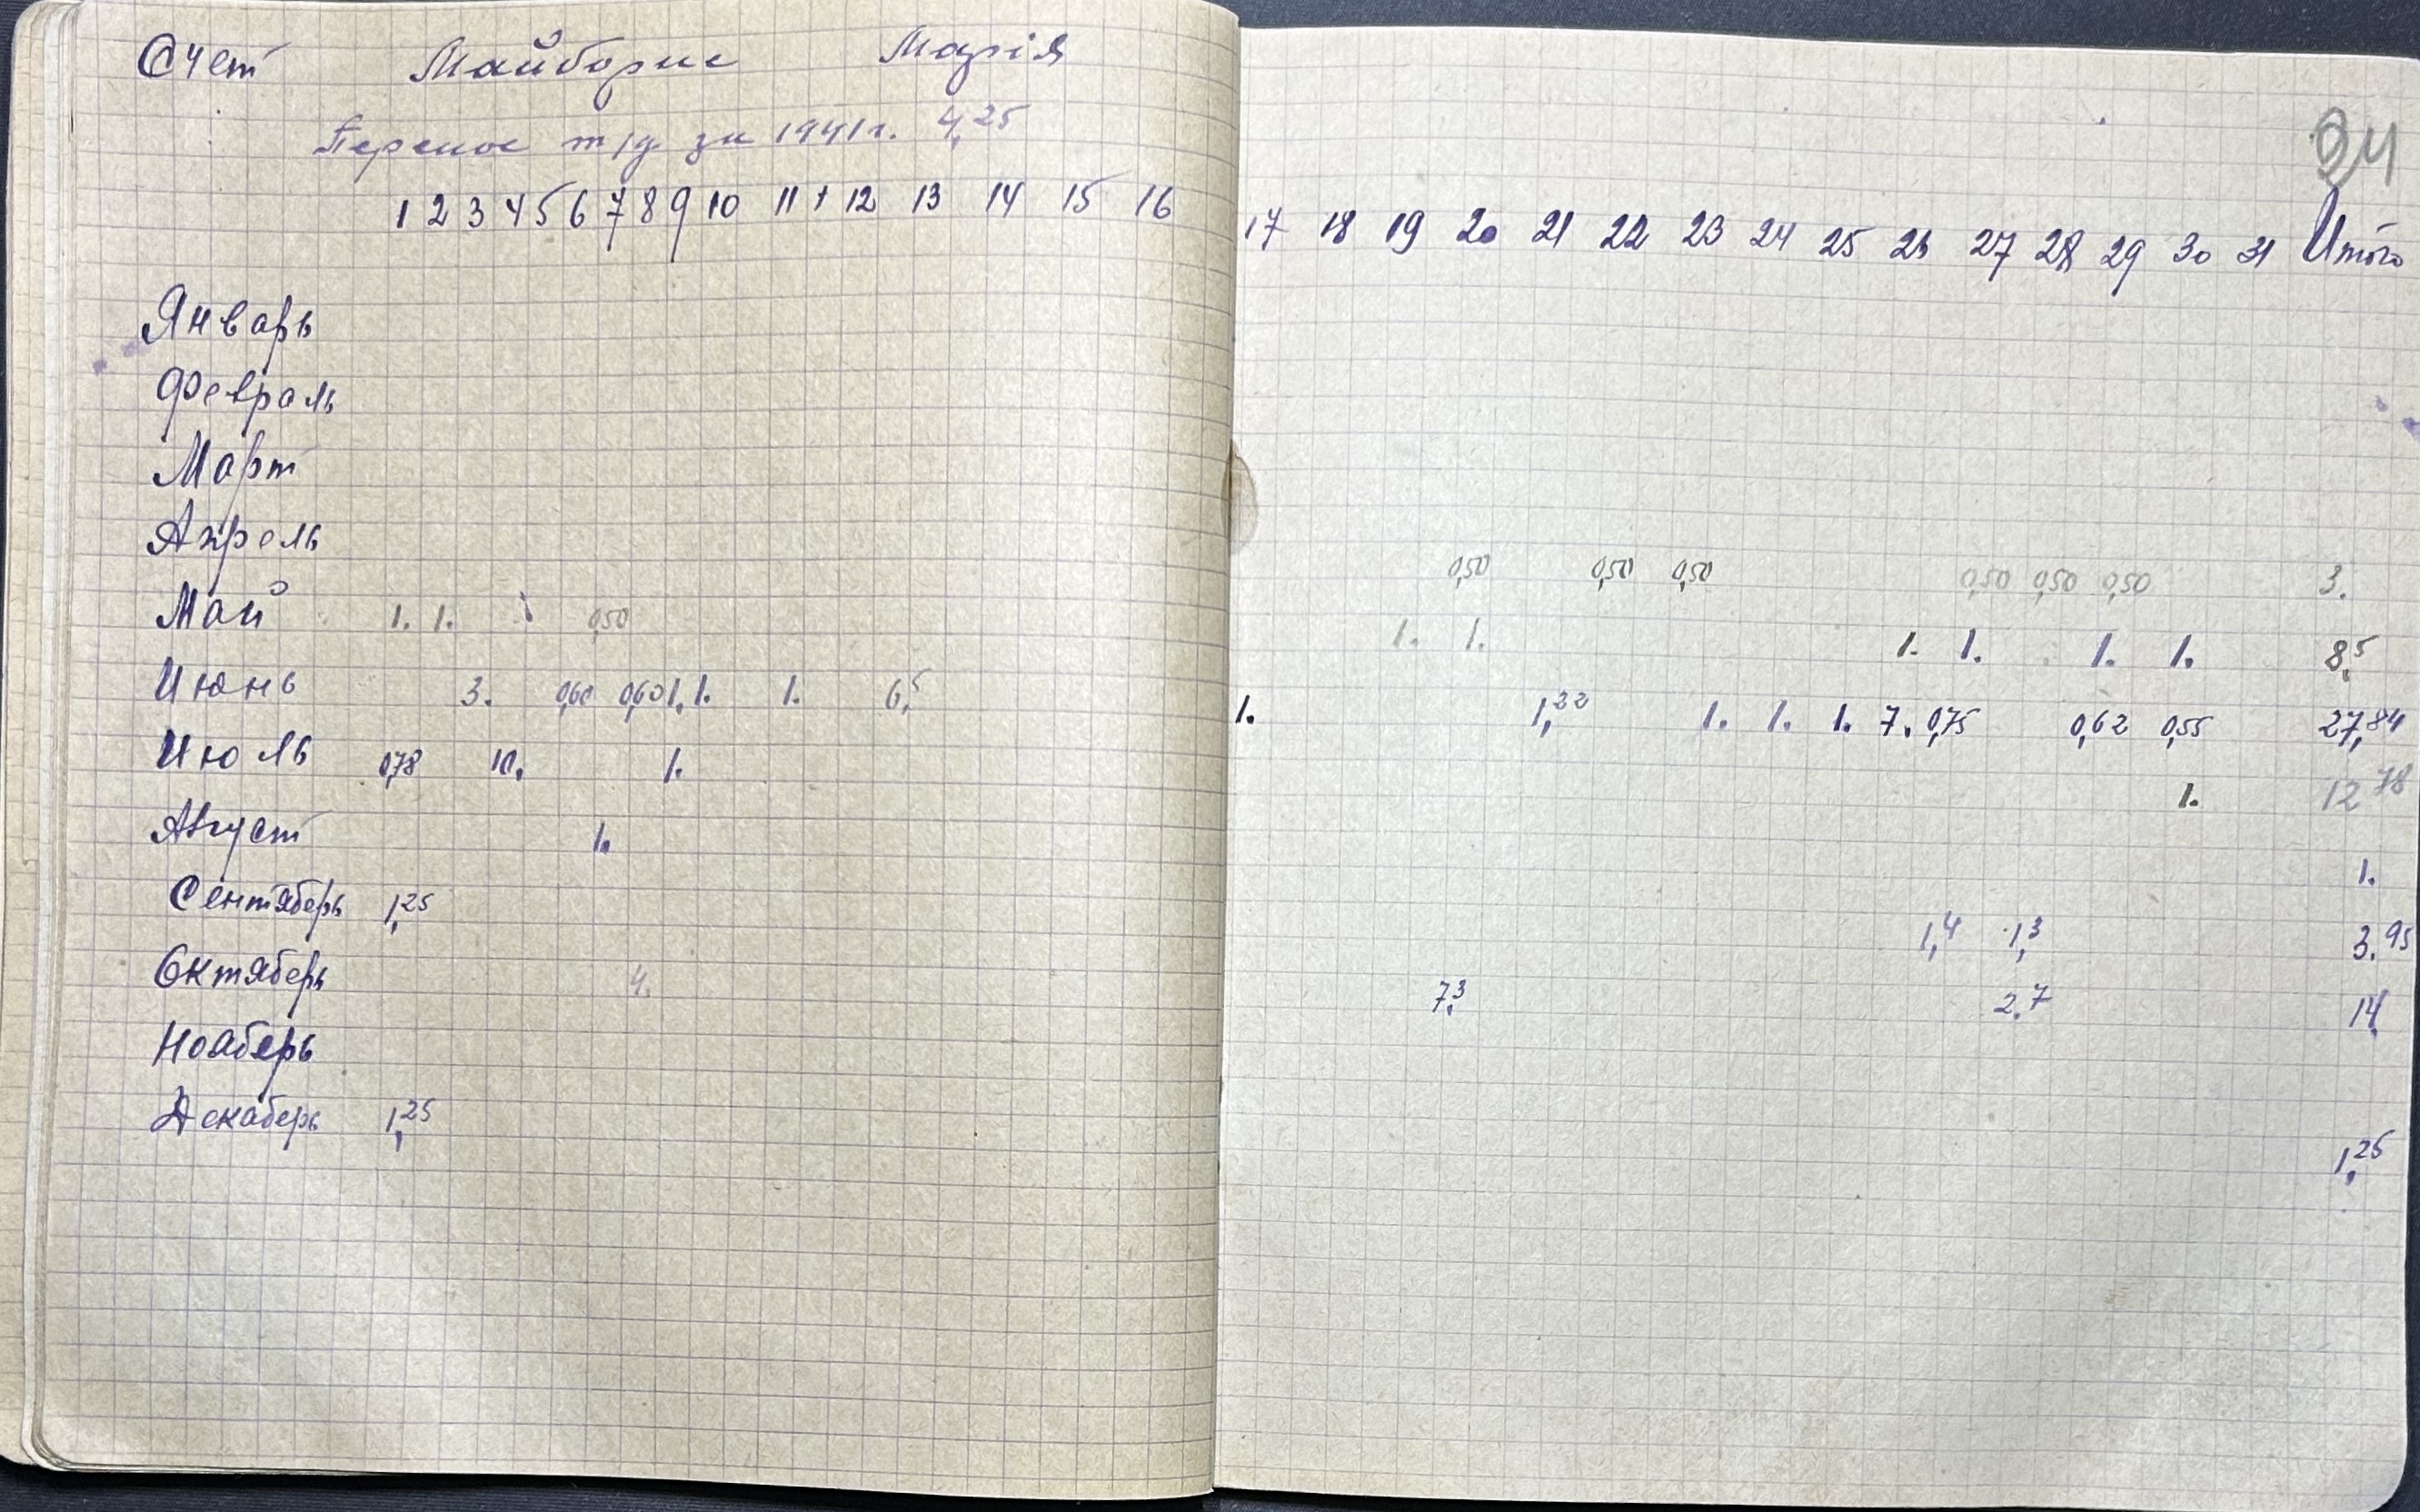 Счет Майборис Марія
Перенос т/д за 1941 г. 4,25
24
1 2 3 4 5 6 7 8 9 10 11 + 12 13 14 15 16 17 18 19 20 21 22 23 24 25 26 27 28 29 30 31 Итого
Январь
Февраль
Март
Апрель 0,50 0,50 0,50 0,50 0,50 0,50 3.
Май 1. 1. 0,50 1. 1. 1. 1. 1. 1. 8,5
Июнь 3. 0,60 0,60 1. 1. 1. 6,5 1. 1,22 1. 1. 1. 7. 0,75 0,62 0,55 27,84
Июль 0,78 10. 1. 1. 12 78
Август 1. 1.
Сентяберь 1,25 1,4 1,3 3.95
Октяберь 4. 7,3 2.7 14
Нояберь
Декаберь 1,25 1,25